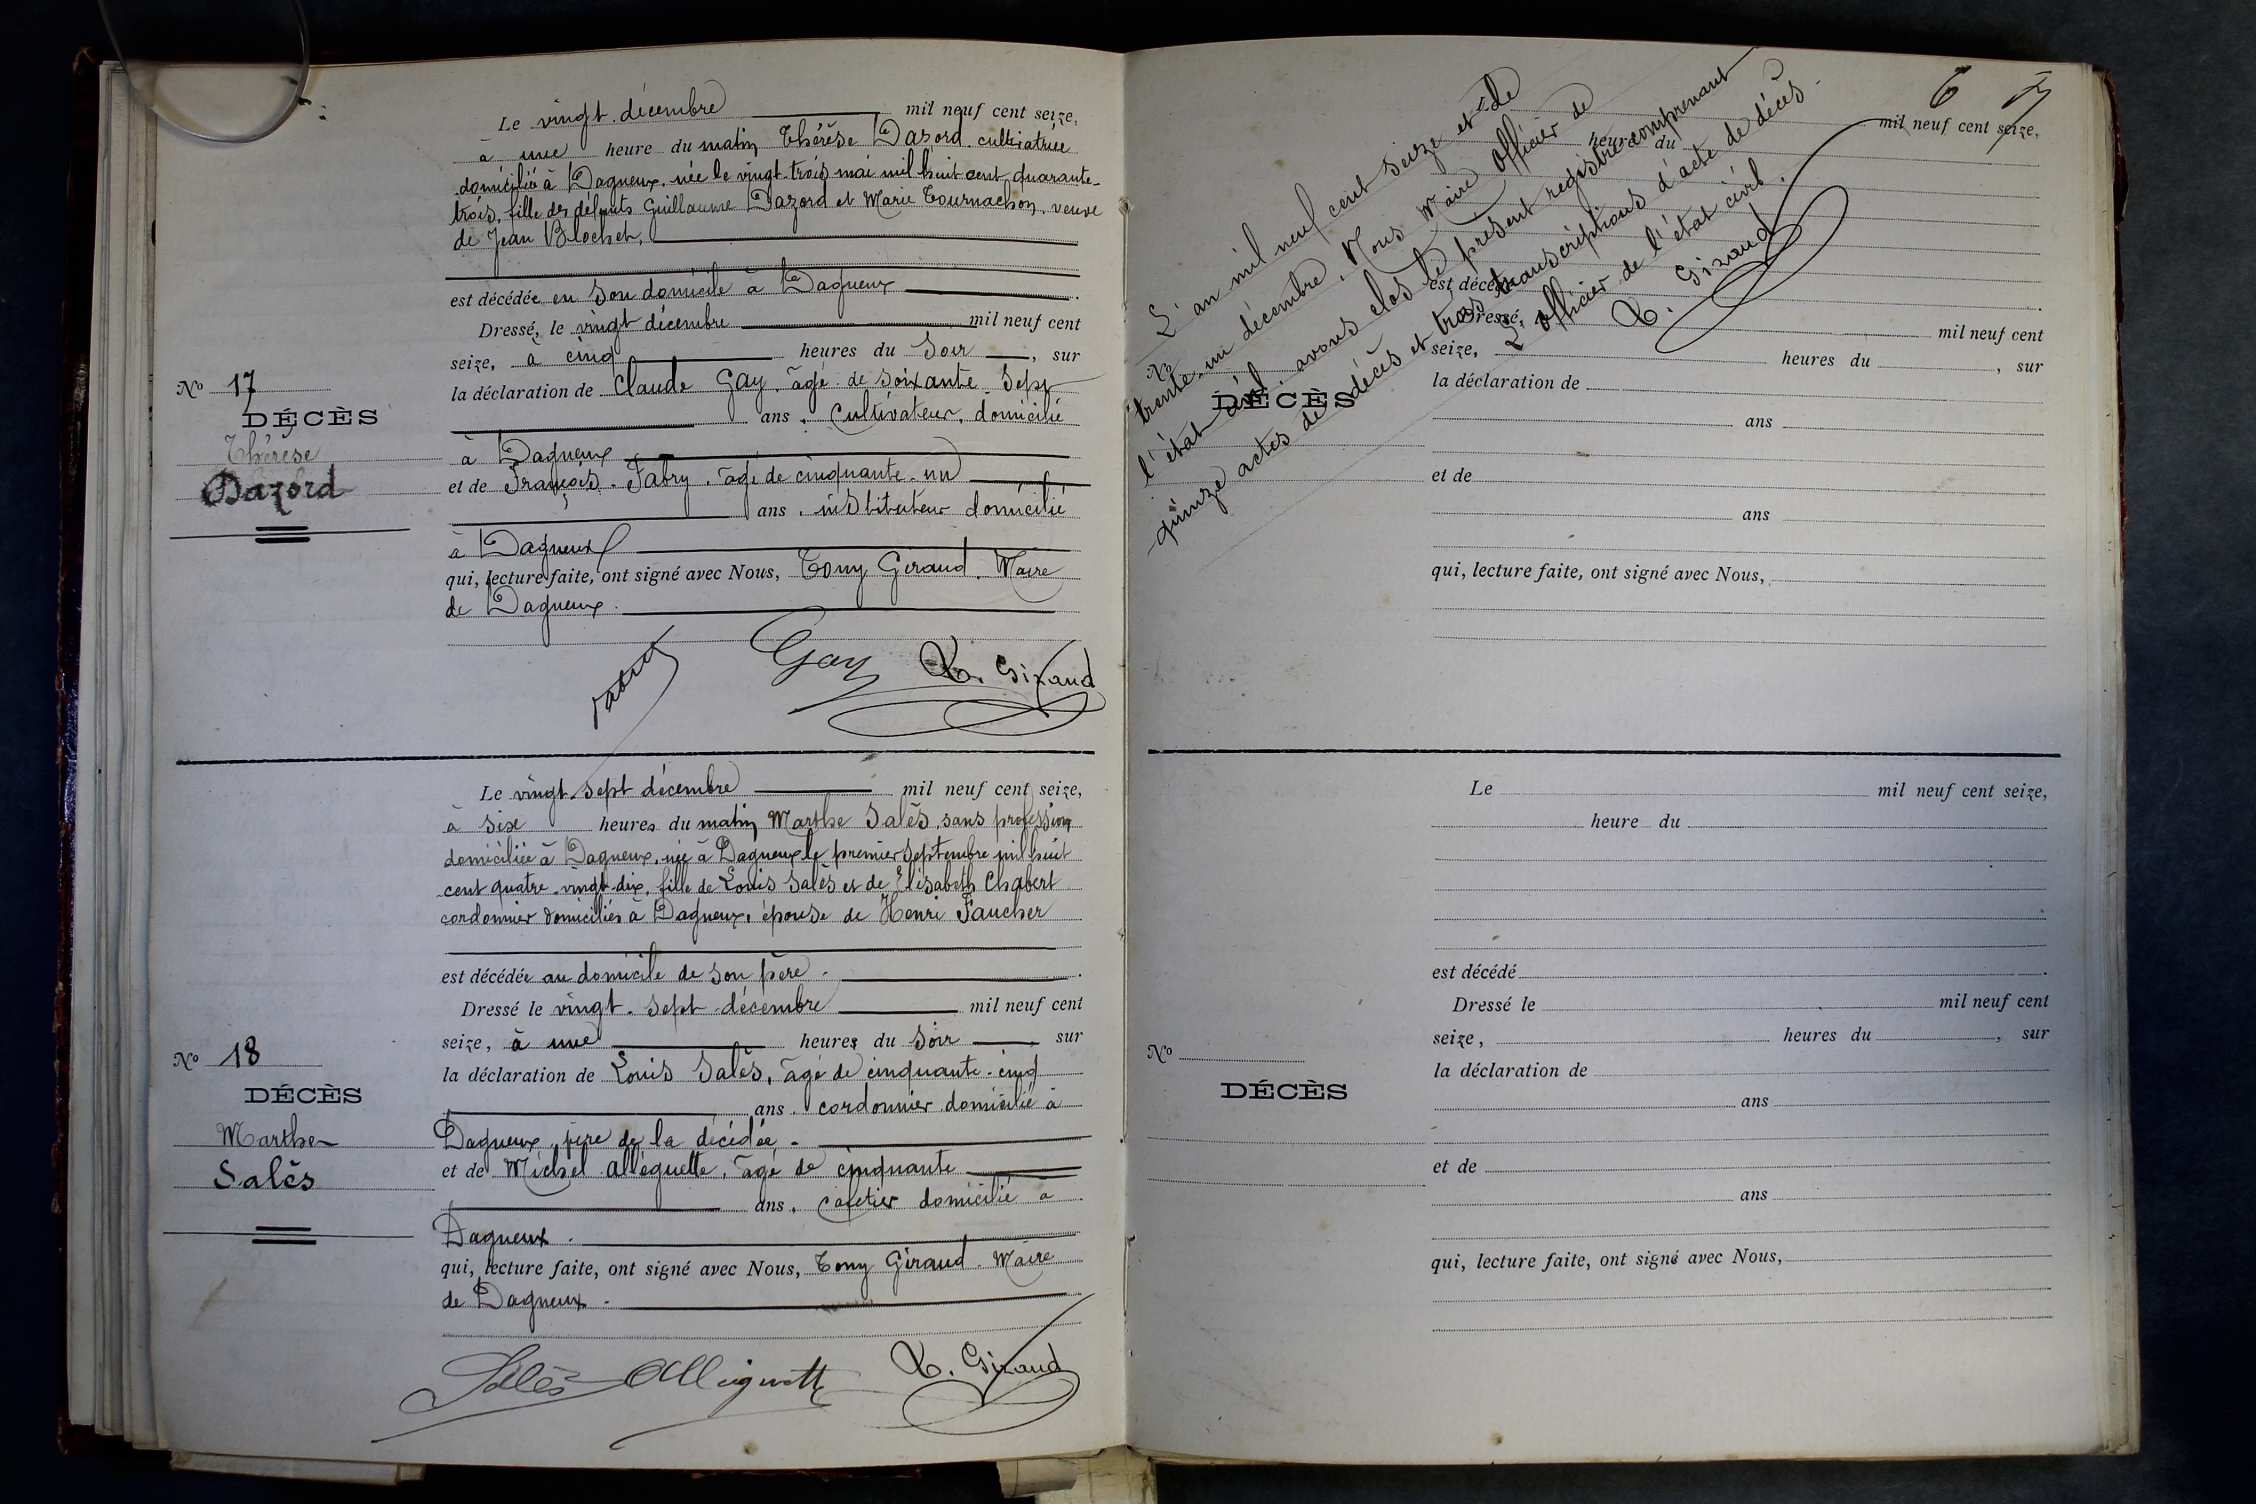 Le vingt décembre mil neuf cent seize,
à une heure du matin Thérèse Dazord cultivatrice
domiciliée à Dagneux, née le vingt trois mai mil huit cent quarante-
trois, fille des défunts Guillaume Dazord et Marie Tournachon, veuve
de Jean Blochet,
est décédée en son domicile à Dagneux.
Dressé, le vingt décembre mil neuf cent
seize, à cinq heures du soir, sur
la déclaration de Claude Gay, âgé de soixante sept
ans, cultivateur, domicilié
à Dagneux
et de François Fabry, âgé de cinquante-un
ans, instituteur domicilié
à Dagneux
qui, lecture faite, ont signé avec Nous, Tony Giraud, Maire
de Dagneux.
No 17
DÉCÈS
Thérèse
Dazord
Fabry Gay T. Giraud
Le vingt-sept décembre mil neuf cent seize,
à six heures du matin Marthe Salès, sans profession
domiciliée à Dagneux, née à Dagneux le premier septembre mil huit
cent quatre-vingt-dix, fille de Louis Salès et de Elisabeth Chabert
cordonnier domiciliés à Dagneux, épouse de Henri Faucher
est décédée au domicile de son père.
Dressé le vingt-sept décembre mil neuf cent
seize, à une heures du soir, sur
la déclaration de Louis Salès, âgé de cinquante-cinq
ans, cordonnier domicilié à
Dagneux, père de la décédée.
et de Michel Alléguette, âgé de cinquante
ans, cafetier domicilié à
Dagneux.
qui, lecture faite, ont signé avec Nous, Tony Giraud, Maire
de Dagneux.
No 18
DÉCÈS
Marthe
Salès
Salès T. Giraud
6
L'an mil neuf cent seize et le
trente-un décembre, Nous Maire officier de
l'état civil, avons clos le présent registre comprenant
quinze actes de décès et trois transcriptions d'acte de décès.
L'officier de l'état civil.
T. Giraud
mil neuf cent seize,
heure du
est décédé
Dressé,
mil neuf cent
seize, heures du , sur
la déclaration de
ans
et de
ans
qui, lecture faite, ont signé avec Nous,
No
DÉCÈS
Le mil neuf cent seize,
heure du
est décédé .
Dressé le mil neuf cent
seize, heures du , sur
la déclaration de
ans
et de
ans
qui, lecture faite, ont signé avec Nous,
No
DÉCÈS